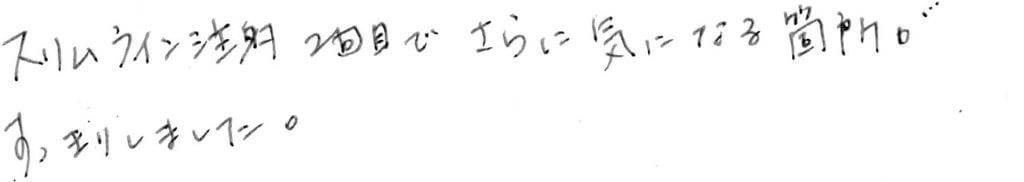 スリムライン注射 2回目で さらに 気になる箇所が
すっきりしました。